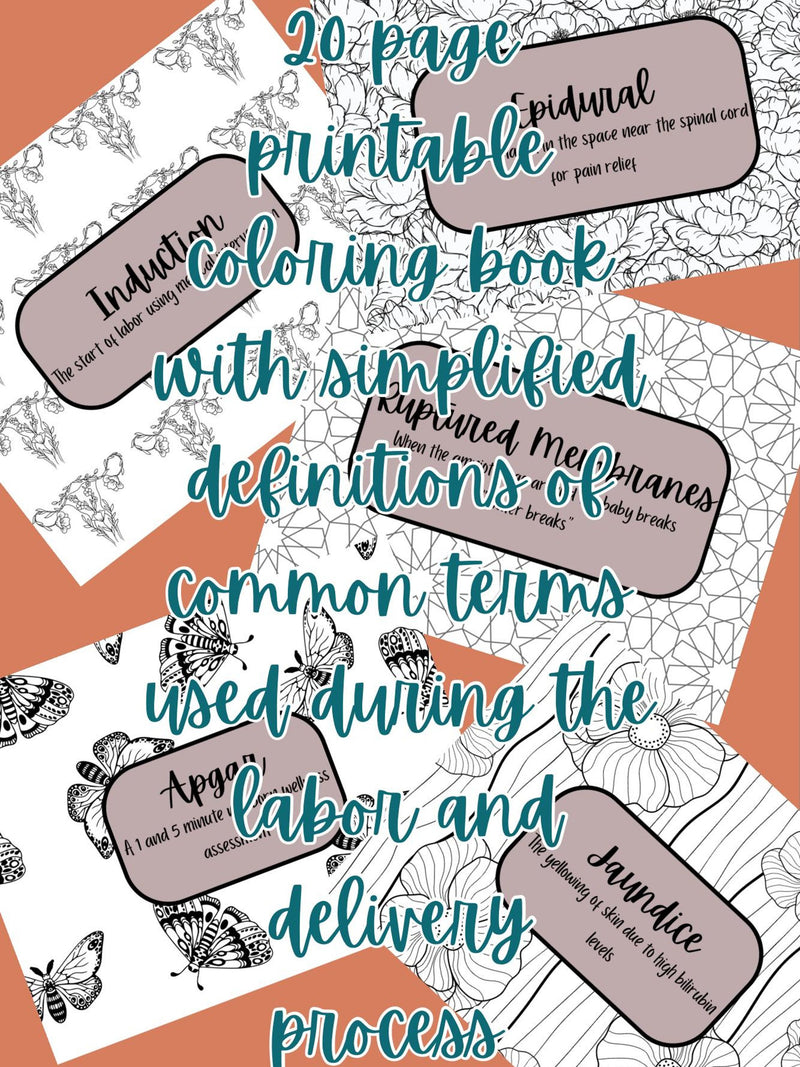 20 page
printable
coloring book
with simplified
definitions of
common terms
used during the
labor and
delivery
process
Epidural
in the space near the spinal cord
for pain relief
Induction
The start of labor using
Ruptured Membranes
When the baby breaks
breaks"
Apgar
A 1 and 5 minute wellness
assessment
Jaundice
The yellowing of skin due to high bilirubin
levels